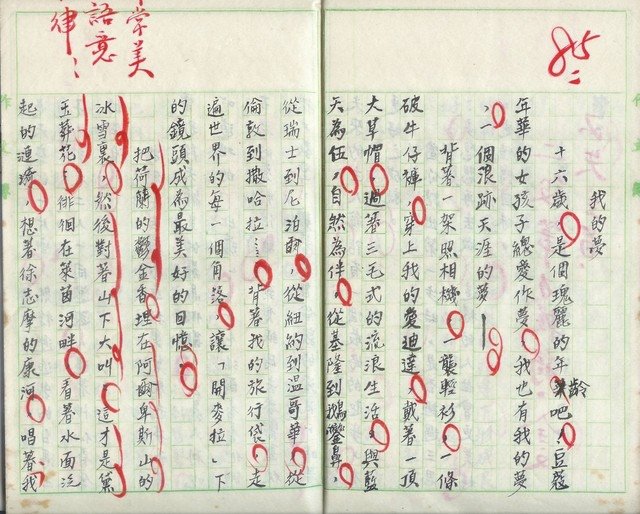 85
我的夢
十六歲，是個瑰麗的年齡吧，豆蔻
年華的女孩子總愛作夢，我也有我的夢
，一個浪跡天涯的夢——
背著一架照相機，一襲輕衫，一條
破牛仔褲，穿上我的愛迪達，戴著一頂
大草帽，過著三毛式的流浪生活，與藍
天為伍，自然為伴，從基隆到鵝鑾鼻，
從瑞士到尼泊爾，從紐約到溫哥華，從
倫敦到撒哈拉……，背著我的旅行袋，走
遍世界的每一個角落，讓「開麥拉」下
的鏡頭成為最美好的回憶。
把荷蘭的鬱金香埋在阿爾卑斯山的
冰雪裏，然後對著山下大叫，這才是黛
玉葬花；徘徊在萊茵河畔，看著水面泛
起的漣漪，想著徐志摩的康河，唱著我
常美
語意
律